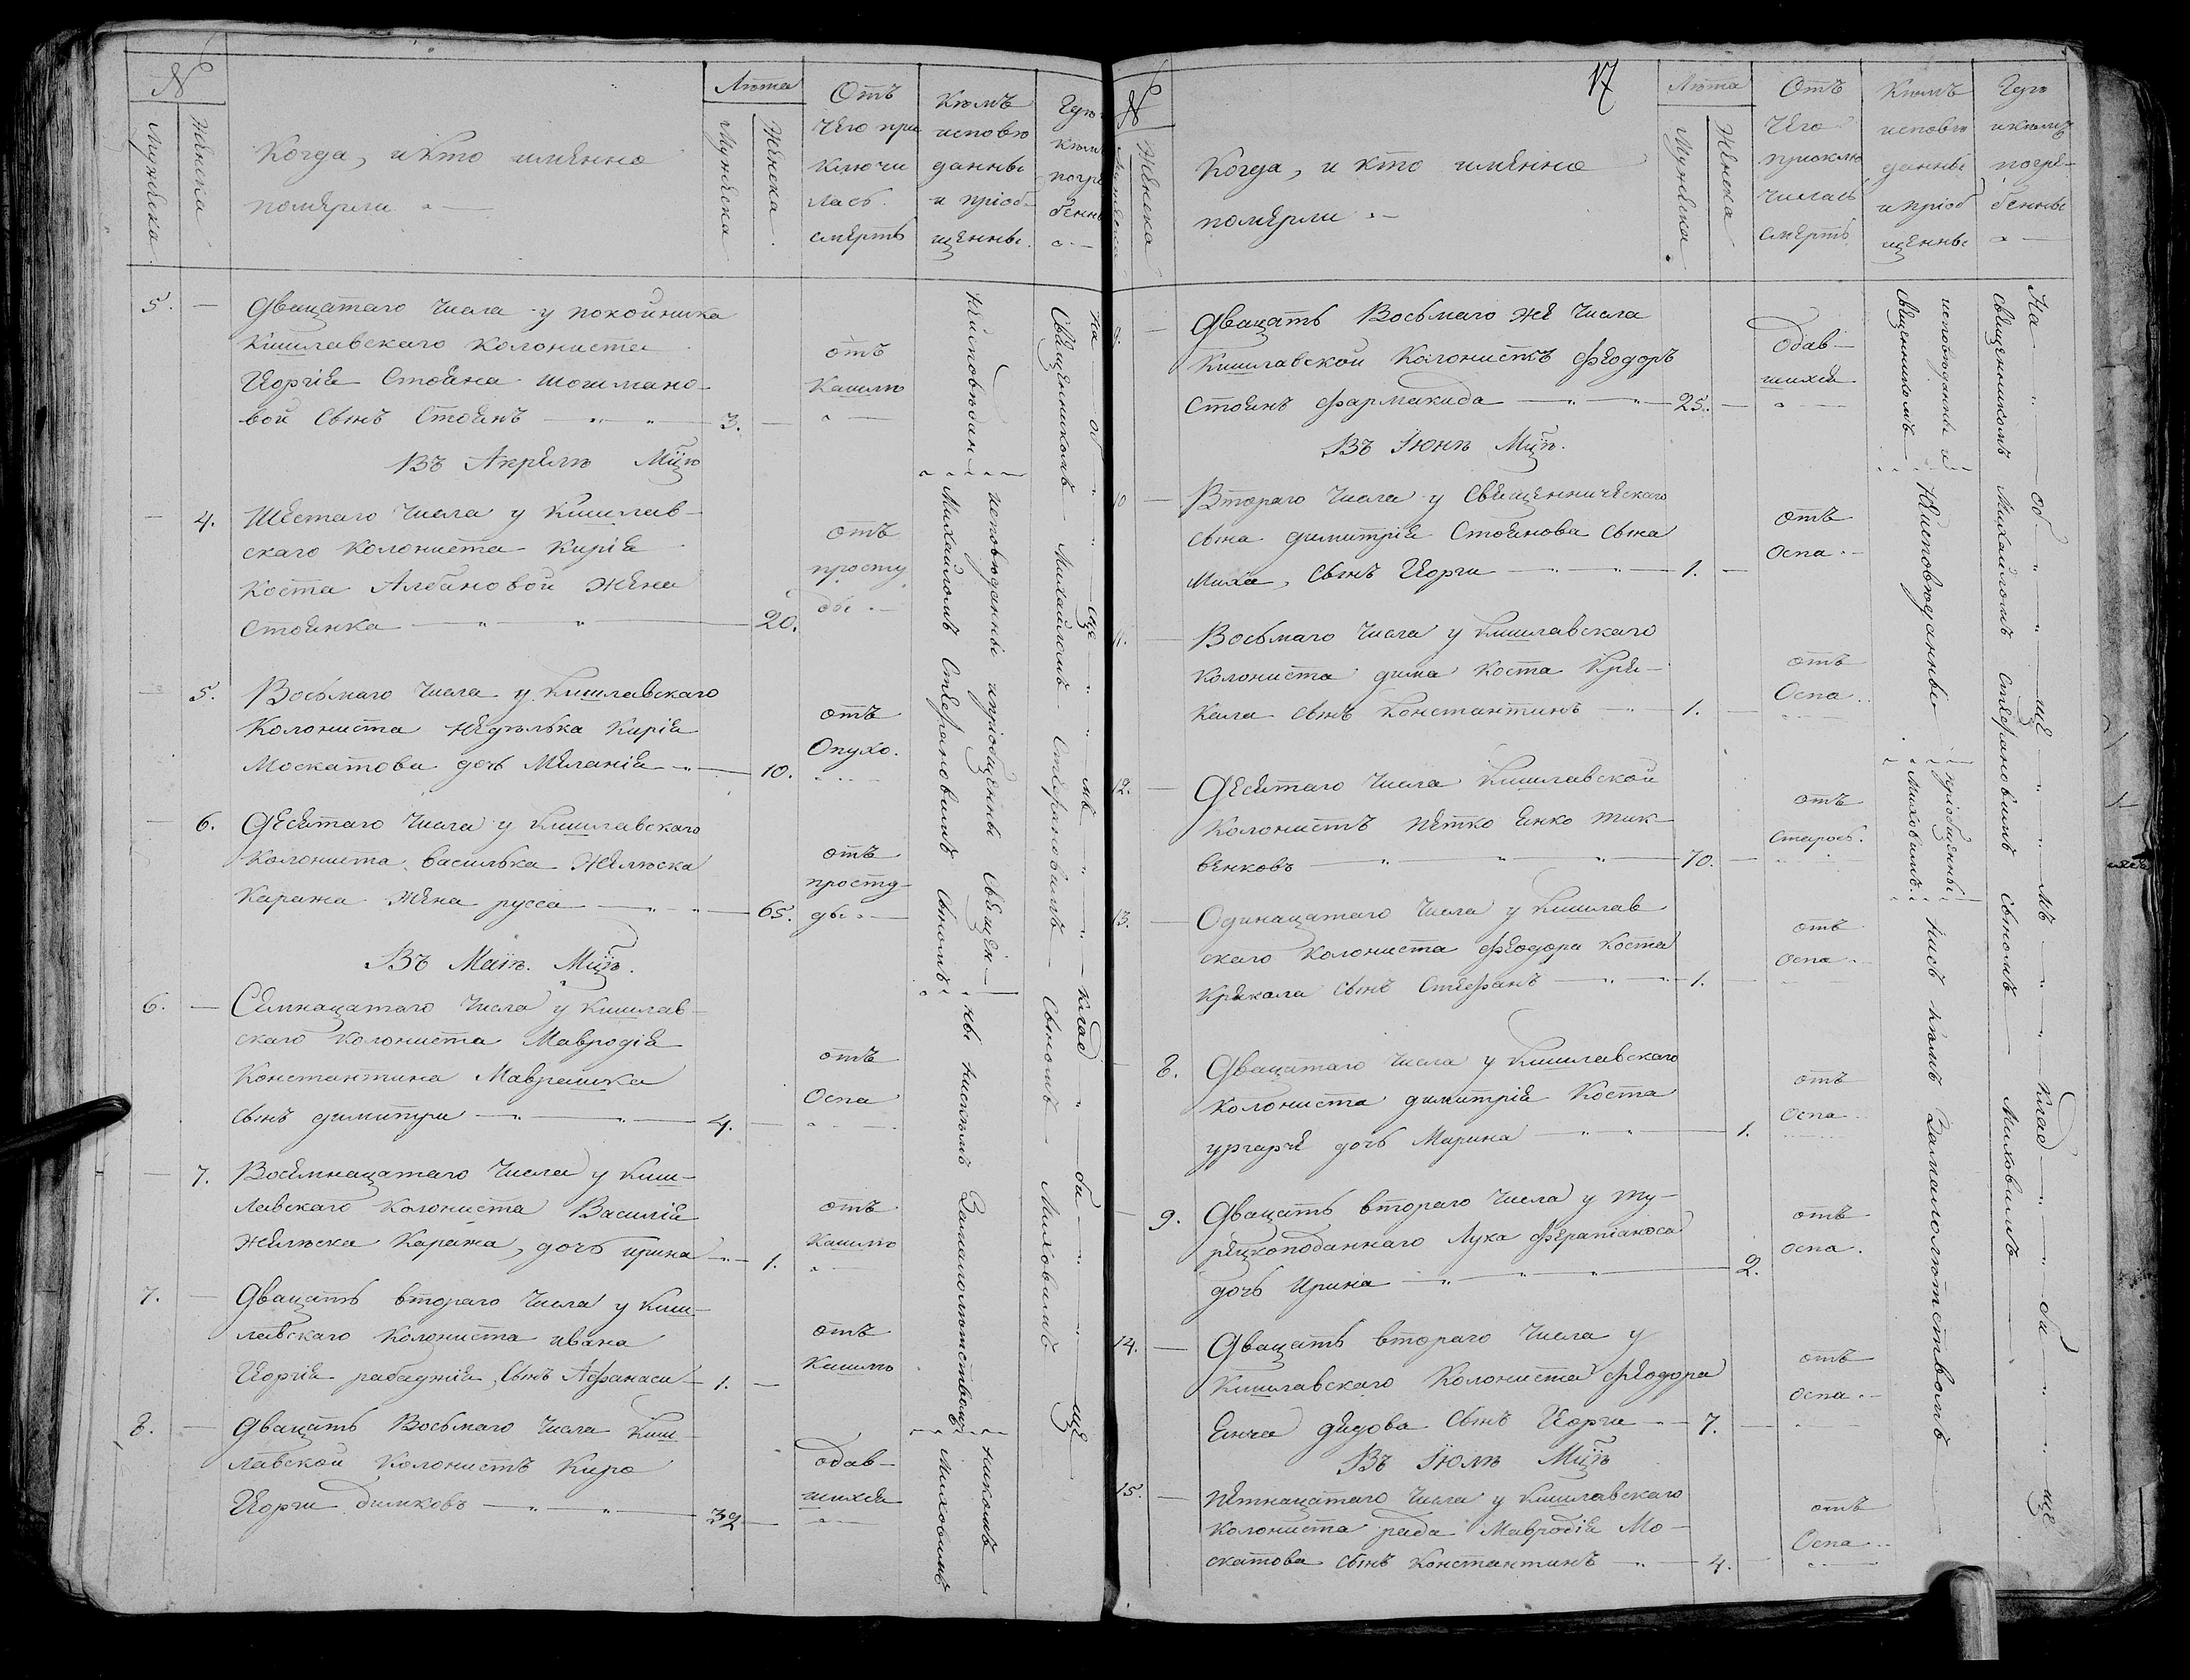 №
Мужеска
Женска
Когда, и кто именно
померли
Лѣта
Мужеска
Женска
Отъ
чего при
ключи
лась
смерть
Кѣмъ
исповѣ
данны
и пріоб-
щенны.
Где
кѣмъ
погре
бенны
5. Двацатаго Числа у покойника
Кишлавскаго Колониста
Георгія Стояна
вой Сынъ Стоянъ 3.
отъ
Кашлю
Въ Апрелѣ Мцѣ
4. Шестаго Числа у Кишлав-
скаго Колониста Кирія
Коста Албановой Жена
Стоянка 20.
отъ
просту
ды
5. Восьмаго Числа у Кишлавскаго
Колониста Недѣлька Кирія
Москатова дочь Меланія 10.
отъ
Опухо.
6. Десятаго Числа у Кишлавскаго
Колониста Василька Желѣска
Каража Жена русса 65.
отъ
просту-
ды
Въ Маіѣ. Мцѣ.
6. Семнацатаго Числа у Кишлав-
скаго Колониста Мавродія
Константина Маврашка
Сынъ димитри 4.
отъ
Оспа
7. Восемнацатаго Числа у Киш-
лавскаго Колониста Василія
Желѣска Каража, дочь ирина 1.
отъ
Кашлю
7. Двацать втораго Числа у Киш-
лавскаго Колониста ивана
Георгія рабаджія, Сынъ Афанаси 1.
отъ
Кашлю
8. Двацать Восьмаго Числа Киш-
лавской Колонистъ Киро
Георги димковъ 32
одав-
шихся
Неисповѣдан
исповѣданны и пріобщенны Священ-
Михайломъ Стефановимъ Сыномъ
ны нискѣмъ Замалолѣтствомъ
никомъ
Миховимъ
На об ще мъ клад би ще
Священникомъ Михайломъ Стефановимъ Сыномъ Миховимъ
17
№
Женска
Когда, и кто именно
померли
Лѣта
Мужеска
Женска
Отъ
Чего
приклю
чилась
смерть
Кѣмъ
исповѣ
данны
и пріоб
щенны
Где
и кѣмъ
погре-
бенны
Двацать Восьмаго же Числа
Кишлавской Колонистъ Феодоръ
Стоянъ Фармакида 25.
одав-
шихся
Въ Іюнѣ Мцѣ.
10 Втораго Числа у Священническаго
сына димитрія Стоянова Сына
Миха, Сынъ Георги 1.
отъ
Оспа
11. Восьмаго Числа у Кишлавскаго
Колониста дима Коста Кря-
кала Сынъ Константинъ 1.
отъ
Оспа
12. Десятаго Числа Кишлавской
Колонистъ Петко Енко Тик-
венковъ 70.
отъ
Старос.
13. Одинацатаго Числа у Кишлав
скаго Колониста Феодора Коста
Крякала Сынъ Стефанъ 1.
отъ
Оспа
8. Двацатаго Числа у Кишлавскаго
Колониста димитрія Коста
ургарчя дочь Марина 1.
отъ
Оспа
9. Двацать втораго Числа у Ту-
рецкоподаннаго Лука
дочь Ирина 2.
отъ
оспа.
14. Двацать втораго Числа у
Кишлавскаго Колониста Феодора
Енча дядова Сынъ Георги 7.
отъ
оспа
Въ Іюлѣ Мцѣ
15. Пятнацатаго Числа у Кишлавскаго
Колониста рада Мавродія Мо-
скатова сынъ Константинъ 4.
отъ
Оспа
исповѣданны и
Священникомъ
Неисповѣданны
пріобщенны
Миховимъ.
кѣмъ Замалолѣтствомъ
На об ще мъ клад би ще
Священникомъ Михайломъ Стефановимъ Сыномъ Миховимъ